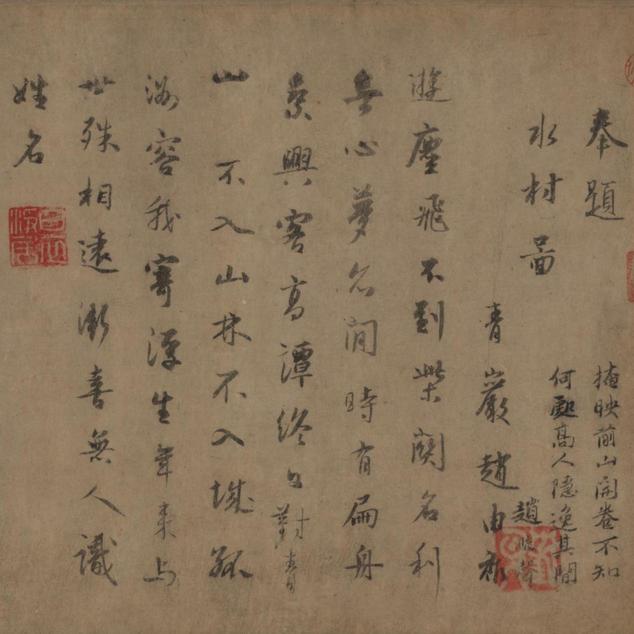 奉題
水村圖
青巖趙由礽
遊塵飛不到柴關名利
無心夢亦閒時有扁舟
乘興客高譚終日對青
山 不入山林不入城孤
洲容我寄浮生年来与
世殊相遠漸喜無人識
姓名
掩映前山開卷不知
何處高人隱逸其間
趙